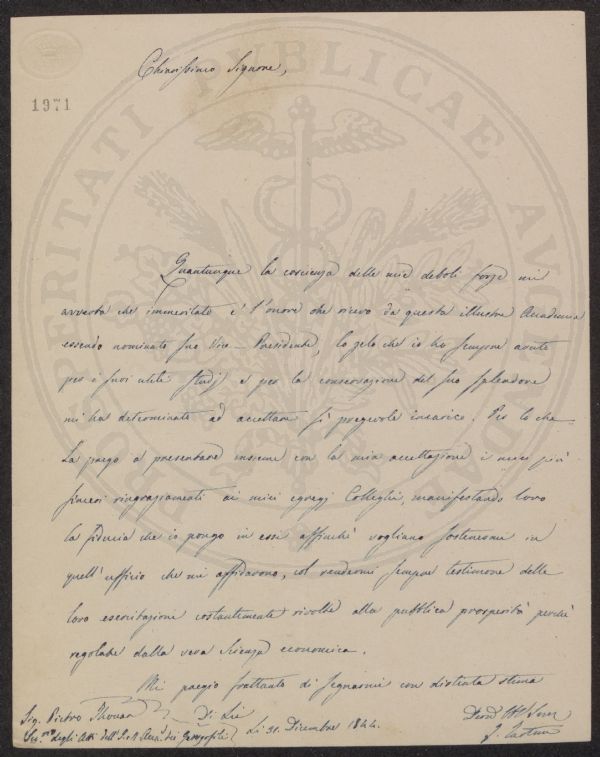 Chiarissimo Signore,
1971
PROSPERITATI PUBLICAE AUGENDAE
Quantunque la coscienza delle mie deboli forze mi
avverta che immeritato è l'onore che ricevo da questa illustre Accademia
essendo nominato suo Vice-Presidente, lo zelo che io ho sempre avuto
per i suoi utili studj e per la conservazione del suo splendore
mi ha determinato ad accettare sì pregevole incarico. Per lo che
La prego a presentare insieme con la mia accettazione i miei più
sinceri ringraziamenti ai miei egregj Colleghi, manifestando loro
la fiducia che io pongo in essi affinchè vogliano sostenermi in
quell'ufficio che mi affidarono, col rendermi sempre testimone delle
loro esercitazioni costantemente rivolte alla pubblica prosperità perchè
regolate dalla vera scienza economica.
Mi pregio frattanto di segnarmi con distinta stima
Sig. Pietro Thouar Di Lei
degli Atti dell'I. e R. Accad. dei Georgofili Li 31. Dicembre 1844.